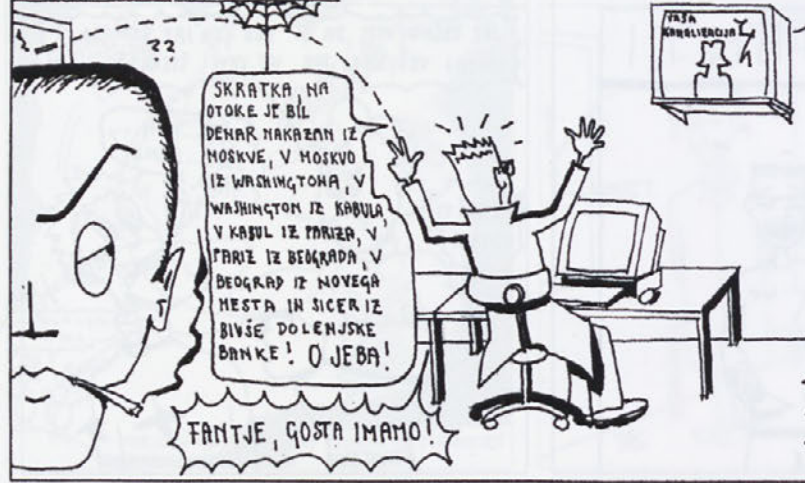 SKRATKA, NA
OTOKE JE BIL
DENAR NAKAZAN IZ
MOSKVE, V MOSKVO
IZ WASHINGTONA, V
WASHINGTON IZ KABULA,
V KABUL IZ PARIZA, V
PARIZ IZ BEOGRADA, V
BEOGRAD IZ NOVEGA
MESTA IN SICER IZ
BIVŠE DOLENJSKE
BANKE! O JEBA!
FANTJE, GOSTA IMAMO!
VAŠA
KANALIZACIJA
??